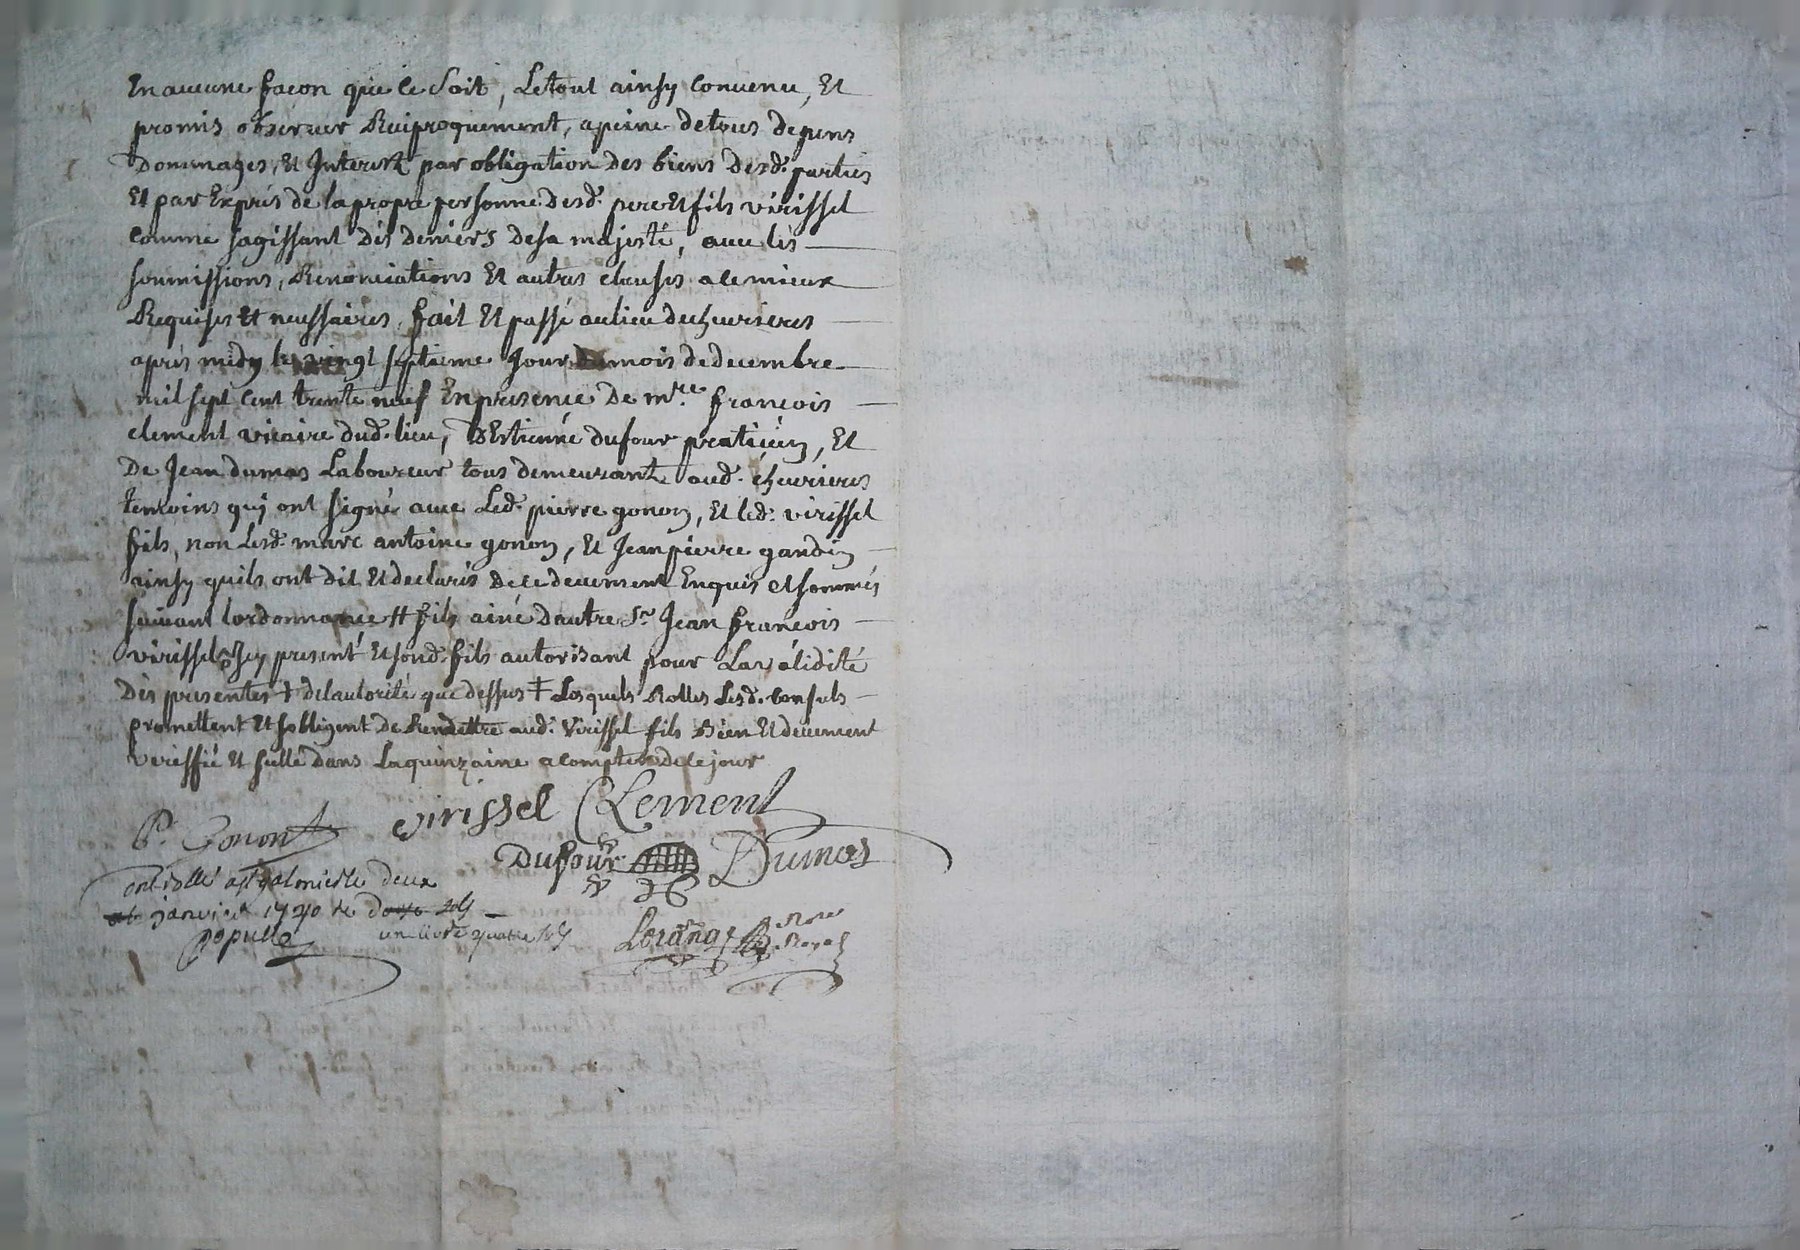 En aucune facon que ce Soit, Le tout ainsy Convenu, Et
promis observer Reciproquement, a peine de tous depens
Dommages, Et Interest par obligation des biens desd. parties
Et par Exprés de la propre personne desd. pere Et fils virissel
comme sagissant des deniers de sa majesté, avec les
soumissions, Renonciations Et autres clauses a le mieux
Requises Et necessaires, fait Et passé au lieu de chevrieres
aprés midy le vingt septieme Jour du mois de decembre
mil sept Cent trente neuf En presence de mre. francois
clement vicaire dud. lieu, D'Estienne dufour praticien, Et
De Jean dumas Laboureur tous demeurants aud. chevrieres
temoins quj ont signé avec Led. pierre gonon, Et led. virissel
fils, non Lesd. marc antoine gonon, Et Jean pierre gandin
ainsy quils ont dit Et declarés de ce deuement Enquis et sommés
suivant lordonnance # fils ainé dautre Sr. Jean francois
virissel Icy present Et sond. fils autorisant pour La validité
Des presentes ‡ de lautorité que dessus ‡ Lesquels Rolles Lesd. Consuls
promettent Et sobligent de Remettre aud. Virissel fils Bien Et deuement
veriffié Et sellé dans La quinzaine a compter de ce jour
P. Gonon virissel Clement
Dufour Dumas
controllé a st galmier le deux
janvier 1740 Re douze sols
un livre quatre sols
Populle
Not.re
Royal